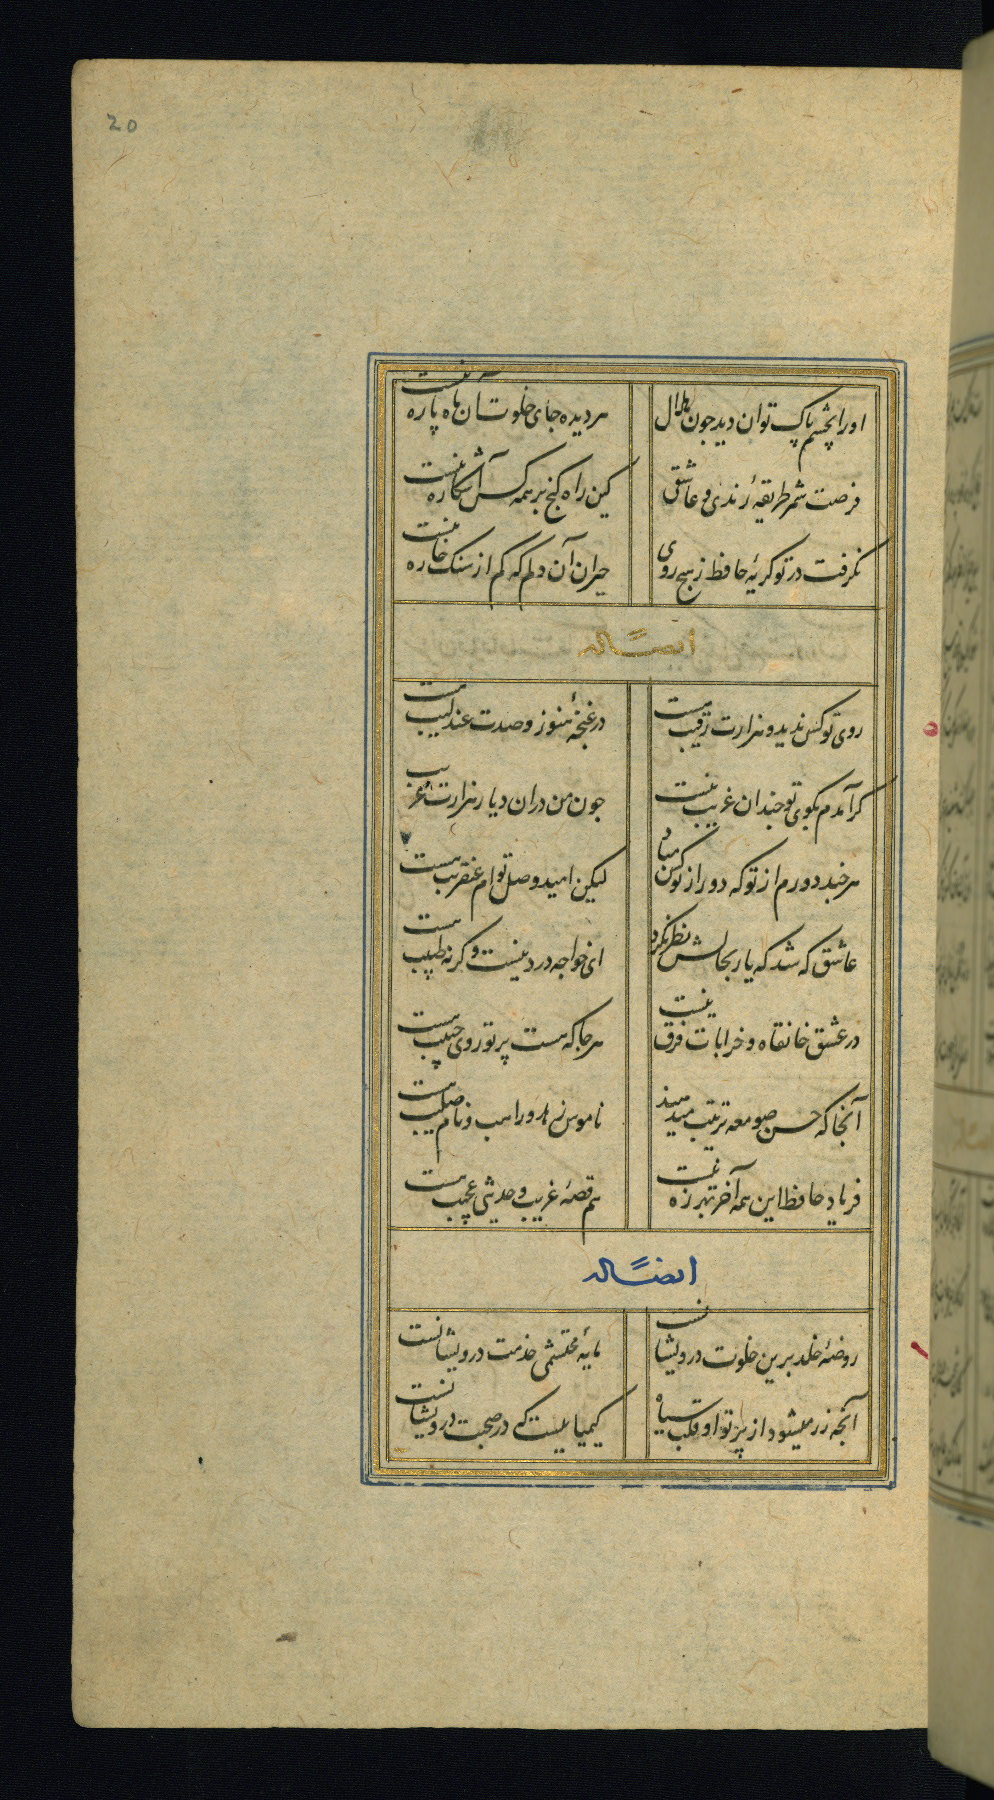 20
اورا بچشم پاک توان دید جون هلال
هر دیده جای جلوت آن ماه پاره نیست
فرصت شمر طریقهٔ رندی و عاشقی
کین راه کنج بر همه کس آشکاره نیست
نکرفت در تو کریهٔ حافظ ز هیج روی
حیران آن دلم که کم از سنک خاره نیست
ایضاً له
روی تو کس ندید و هزارت رقیب هست
در غنجهٔ هنوز و صدت عندلیب هست
کر آمدم بکوی تو جندان غریب نیست
جون من دران دیار هزارت غریب
هر جند دورم از تو که دور از تو کس مباد
لیکن امید وصل توام عنقریب هست
عاشق که شد که یار بحالش نظر نکرد
ای خواجه درد نیست و کرنه طبیب هست
در عشق خانقاه و خرابات فرق نیست
هر جا که هست پرتو روی حبیب هست
آنجا که حسن صومعه ترتیب میدهند
ناموس زهد و راهب و نام صلیب هست
فریاد حافظ این همه آخر بهرزه نیست
هم قصهٔ غریب و حدیثی عجیب هست
ایضاً له
روضهٔ خلد برین خلوت درویشانست
مایهٔ محتشمی خدمت درویشانست
آنجه زر میشود از پرتو او قلب سیاه
کیمیاییست که در صحبت درویشانست